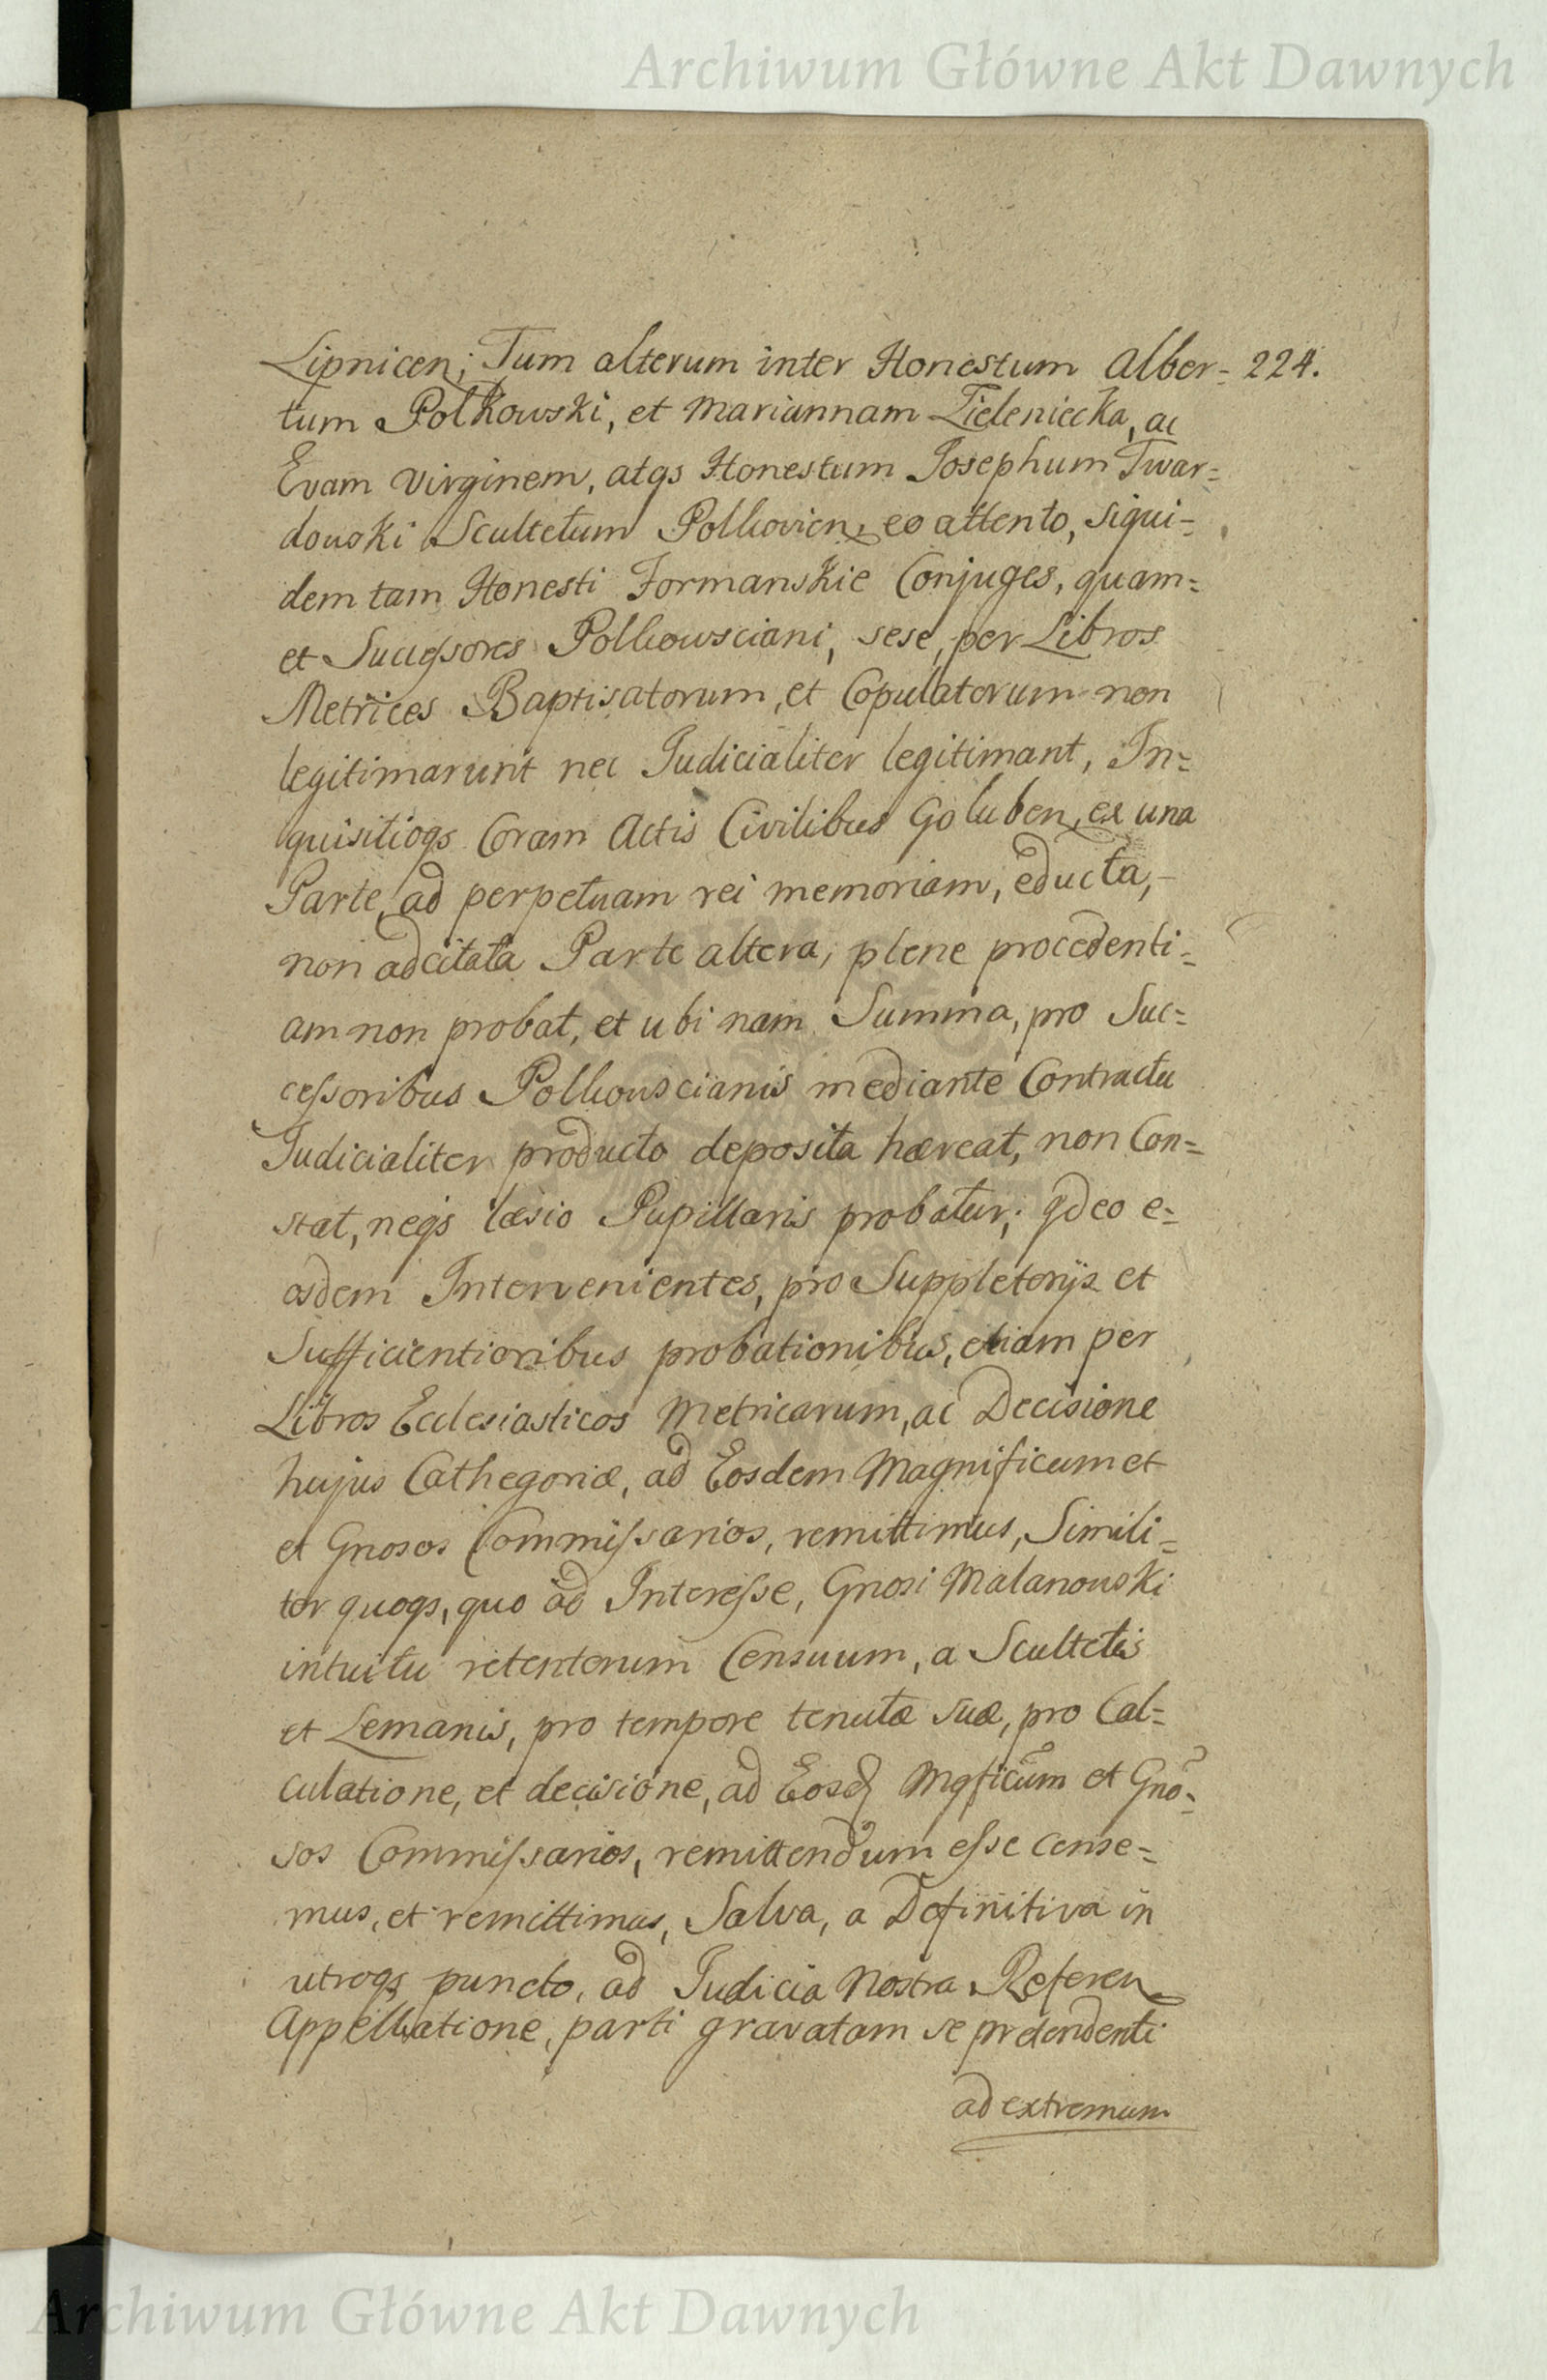 Archiwum Główne Akt Dawnych
Lipnicen; Tum alterum inter Honestum Alber= 224.
tum Polkowski, et Mariannam Zieleniecka, ac
Evam Virginem, atqs Honestum Josephum Twar=
dowski Scultetum Polkovien, eo attento, siqui=
dem tam Honesti Formanskie Conjuges, quam=
et Sucessores Polkowsciani, sese, per Libros
Metrices Baptisatorum, et Copulatorum non
legitimarunt nec Judicialiter legitimant, In=
quisitioqs Coram Actis Civilibus Goluben, ex una
Parte, ad perpetuam rei memoriam, educta,
non adcitata Parte altera, plene procedenti=
am non probat, et ubi nam Summa, pro Suc=
cessoribus Polkowscianis mediante Contractu
Judicialiter producto deposita hæreat, non Con=
stat, neqs læsio Pupillaris probatur; qdeo e=
osdem Intervenientes, pro Suppletorijs et
Sufficientioribus probationibus, etiam per
Libros Ecclesiasticos Metricarum, ac Decisione
hujus Cathegoriæ, ad Eosdem Magnificum et
et Gnosos Commissarios, remittimus, Simili=
ter quoqs, quo ad Interesse, Gnosi Malanowski
intuitu retentorum Censuum, a Scultetis
et Lemanis, pro tempore tenutæ suæ, pro Cal=
culatione, et decisione, ad Eosd Mgficum et Gno=
sos Commissarios, remittendum esse cense=
mus, et remittimus, Salva, a Definitiva in
utroqs puncto, ad Judicia Nostra Referen
Appellatione, parti gravatam se prætendenti
ad extremum
Archiwum Główne Akt Dawnych